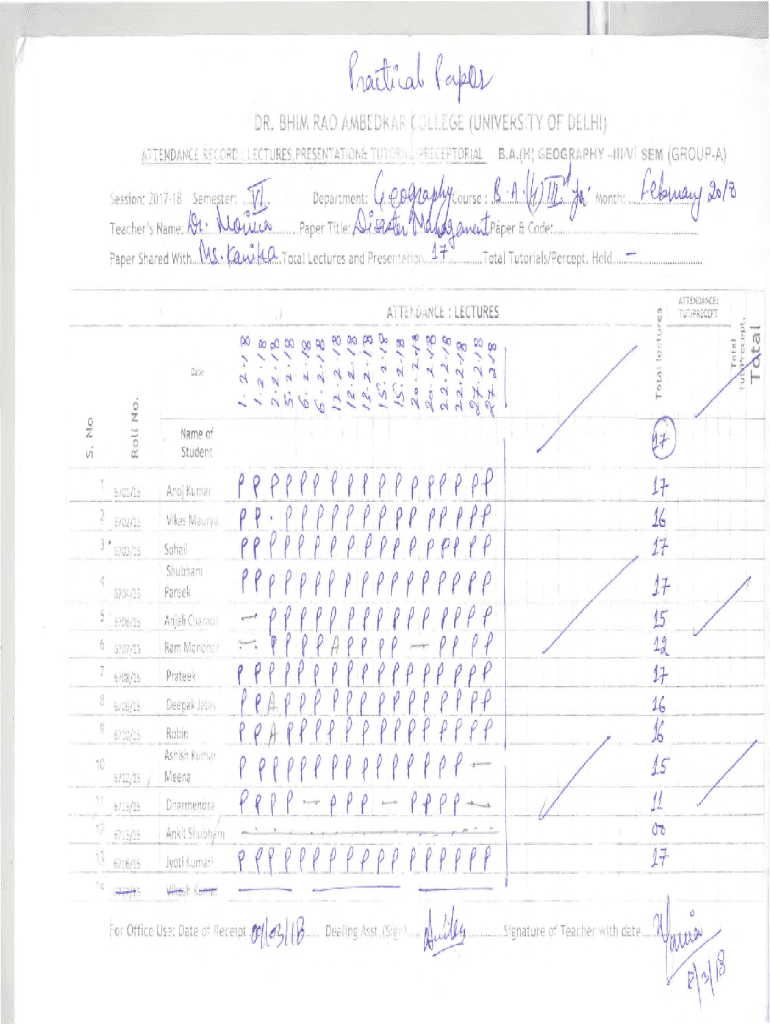 Practical Paper
DR. BHIM RAO AMBEDKAR COLLEGE (UNIVERSITY OF DELHI)
ATTENDANCE RECORD : LECTURES, PRESENTATION& TUTORIAL/PRECEPTORIAL B.A.(H) GEOGRAPHY -III/VI SEM (GROUP-A)
Session: 2017-18 Semester: VI Department: Geography Course : B.A.(H) IIIrd yr. Month: February 2018
Teacher's Name: Dr. Paper Title: Disaster Management Paper & Code:
Paper Shared With Ms. Kanika Total Lectures and Presentation 17 Total Tutorials/Percept. Held —
ATTENDANCE : LECTURES Total lectures ATTENDANCE: TUT/PRECEPT Total Tut/Precept. Total
Date 1.2.18 1.2.18 2.2.18 5.2.18 6.2.18 6.2.18 12.2.18 12.2.18 15.2.18 15.2.18 20.2.18 20.2.18 22.2.18 22.2.18 27.2.18 27.2.18
S. No Roll No. Name of Student 17
1 6701/15 Anoj Kumar P P P P P P P P P P P P P P P P P 17
2 6702/15 Vikas Maurya P P . P P P P P P P P P P P P P P 16
3 6703/15 Sohail P P P P P P P P P P P P P P P P P 17
4 6704/15 Shubham Pareek P P P P P P P P P P P P P P P P P 17
5 6706/15 Anjali — P P P P P P P P P P P P P P P 15
6 6707/15 Ram P P P P A P P P P — P P P P 12
7 6708/15 Prateek P P P P P P P P P P P P P P P P P 17
8 6709/15 Deepak P P A P P P P P P P P P P P P P P 16
9 6710/15 Robin P P A P P P P P P P P P P P P P P 16
10 6712/15 Ashish Kumar Meena P P P P P P P P P P P P P P P — 15
11 6713/15 Dharmendra P P P P — P P P — P P P P — 11
12 6715/15 Ankit Shubham 00
13 6716/15 Jyoti Kumari P P P P P P P P P P P P P P P P P 17
14 Vikash Kumar
For Office Use: Date of Receipt /03/18 Dealing Asst. (Sign) Signature of Teacher with date
8/3/18